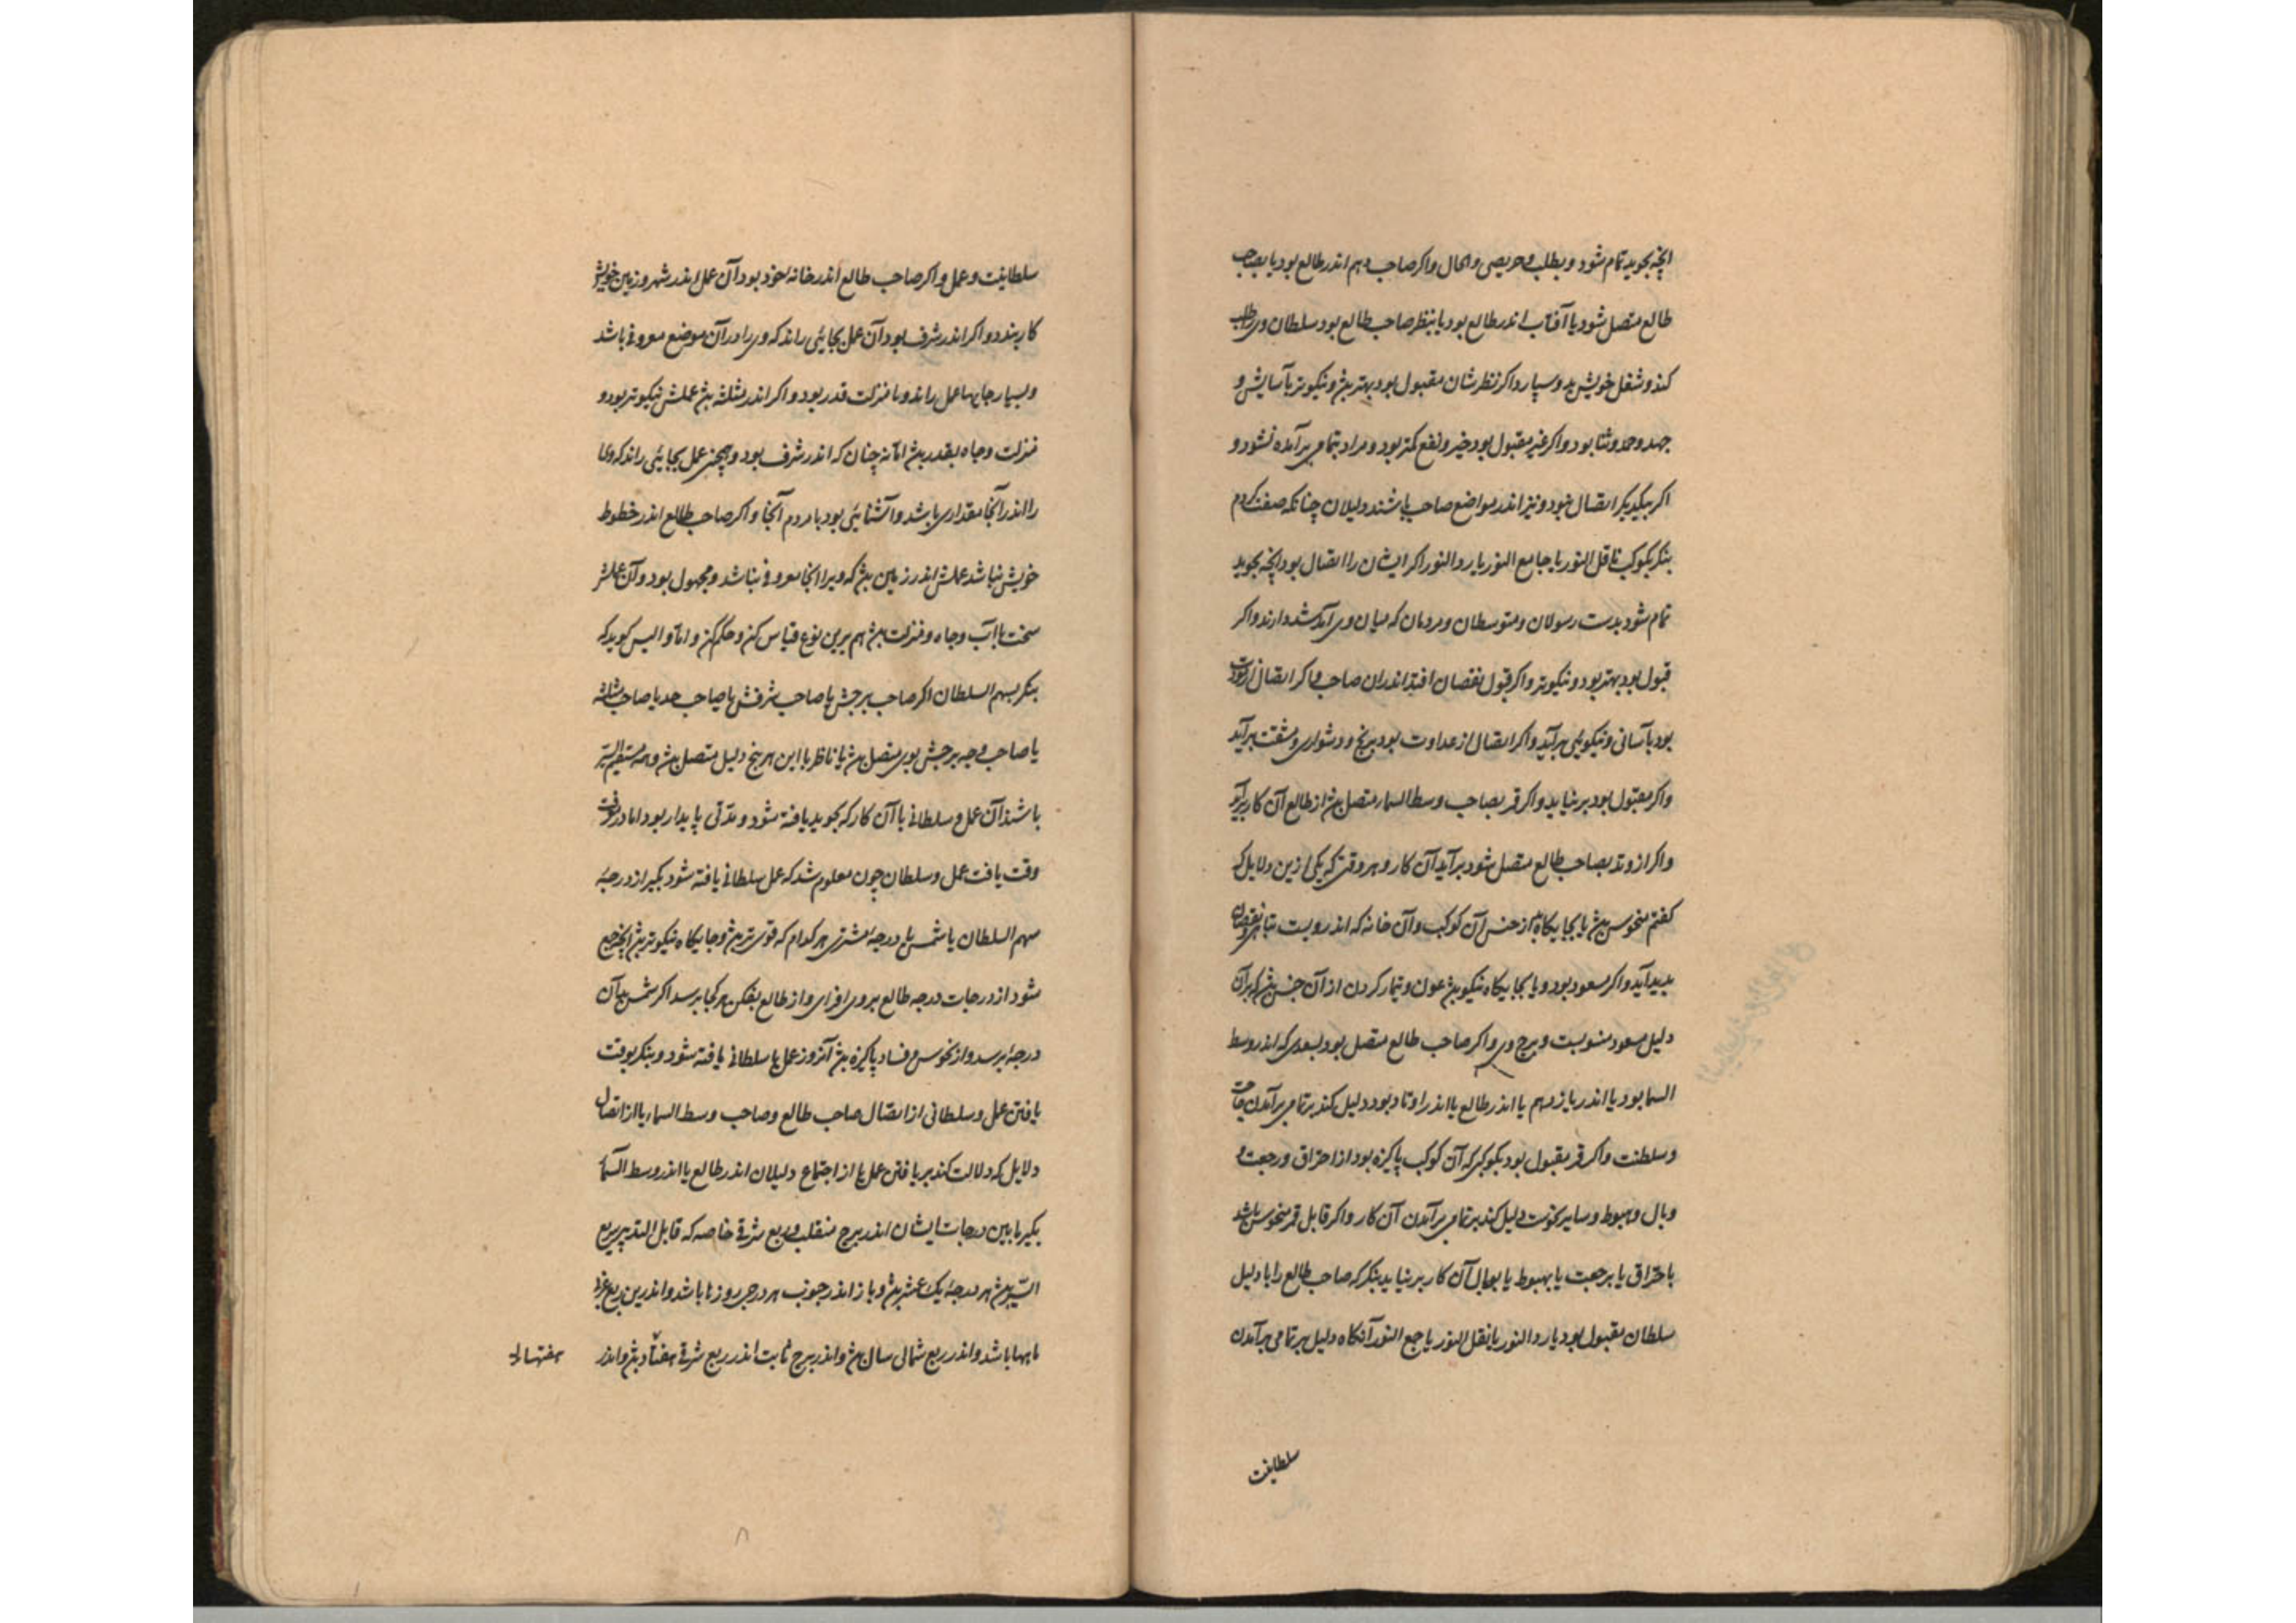 انچه بجوید تمام شود و بطلب و حریصی و الحال و اکر صاحب دهم اندر طالع بود یا بصاحب
طالع متصل شود یا آفتاب اندر طالع بود یا بنظر صاحب طالع بود سلطان ویرا طلب
کند و شغل خویش بدو سپارد اکر نظرشان مقبول بود بهتر بود و نیکوتر باسایش و
جهد و حمد و ثنا بود و اکر غیر مقبول بود خیر و نفع کمتر بود و مراد بتمامی برآمده نشود و
اکر بیکدیکر اتصال نبود و نیز اندر مواضع صاحب باشند دلیلان چنانکه صفت کردم
بنکر بکوکب ناقل النور یا جامع النور یا رد النور اکر ایشان را اتصال بود انچه بجوید
تمام شود بدست رسولان و متوسطان و مردمان که میان وی آمد شد دارند و اکر
قبول بود بهتر بود و نیکوتر و اکر قبول نقصان افتد اندران صاحب و اکر اتصال از مودت
بود باسانی و نیکویی برآید و اکر اتصال از عداوت بود برنج و دشواری و مشقت برآید
و اکر مقبول بود برنیاید و اکر قمر بصاحب وسط السماء متصل بود از طالع آن کار برآید
و اکر از وتد بصاحب طالع متصل شود برآید آن کار و هر وقتی که یکی ازین دلایل که
کفتم منحوس بود یا بجایکاه از جنس آن کوکب و آن خانه که اندرویست تباهی و نقصان
پدید آید و اکر مسعود بود و یا بجایکاه نیکو بود عون و تیمار کردن از آن جنس بود که بران
دلیل مسعود منسوبست و برج وی و اکر صاحب طالع متصل بود بسعدی که اندر وسط
السما بود یا اندر یازدهم یا اندر طالع یا اندر اوتاد بود دلیل کند بر تمامی برآمدن حاجت
و سلطنت و اکر قمر مقبول بود بکوکبی که آن کوکب پاکیزه بود از احتراق و رجعت و
وبال و هبوط و سایر نحوست دلیل کند بر تمامی برآمدن آن کار و اکر قابل قمر منحوس باشد
باحتراق یا برجعت یا بهبوط یا بوبال آن کار برنیاید بنکر که صاحب طالع را با دلیل
سلطان مقبول بود یا رد النور یا نقل النور یا جمع النور آنکاه دلیل بر تمامی برآمدن
سلطانیت
سلطانیت و عمل و اکر صاحب طالع اندر خانه خود بود آن عمل اندر شهر و زمین خویش
کار بندد و اکر اندر شرف بود آن عمل بجائی راند که وی را در آن موضع معروفی باشد
و بسیار جایها عمل راند و با منزلت قدر بود و اکر اندر مثلثه بود عملش نیکوتر بود و
منزلت و جاه بقدر بود اما نه چنان که اندر شرف بود و همچنین عمل بجائی راند که وی
را اندر آنجا مقداری باشد و آشنائی بود با مردم آنجا و اکر صاحب طالع اندر خطوط
خویش نباشد عملش اندر زمین بود که ویرا آنجا معروفی نباشد و مجهول بود و آن عملش
سخت با آب و جاه و منزلت بود هم برین نوع قیاس کن و حکم کن و اما والیس کوید که
بنکر بسهم السلطان اکر صاحب برجش یا صاحب شرفش یا صاحب حد یا صاحب مثلثه
یا صاحب وجه برجش بوی متصل بود یا ناظر با این هر پنج دلیل متصل بود و همه مستقیم السیر
باشند آن عمل و سلطانی یا آن کار که بجوید یافته شود و مدتی پایدار بود اما
وقت یافت عمل و سلطان چون معلوم شد که عمل سلطانی یافته شود بکیر از درجه
سهم السلطان یا شمس یا درجه مشتری هر کدام که قوی تر بود و جایکاه نیکوتر بود انچه جمع
شود از درجات درجه طالع بر وی افزای و از طالع بفکن هر کجا برسد اکر شمس بآن
درجه برسد و از نحوس و فساد پاکیزه بود آنروز عمل یا سلطانی یافته شود و بنکر بوقت
یافتن عمل و سلطانی از اتصال صاحب طالع و صاحب وسط السماء یا از اتصال
دلایل که دلالت کند بر یافتن عمل یا از اجتماع دلیلان اندر طالع یا اندر وسط السماء
بکیر مابین درجات ایشان اندر برج منقلب و ربع شرقی خاصه که قابل التدبیر سریع
السیر بود هر درجه یک عشر بود و باز اندر جنوب هر درجی روزها باشد و اندرین ربع غربی
ماهها باشد و اندر ربع شمالی سال بود و اندر برج ثابت اندر ربع شرقی هفتاد بود و اندر